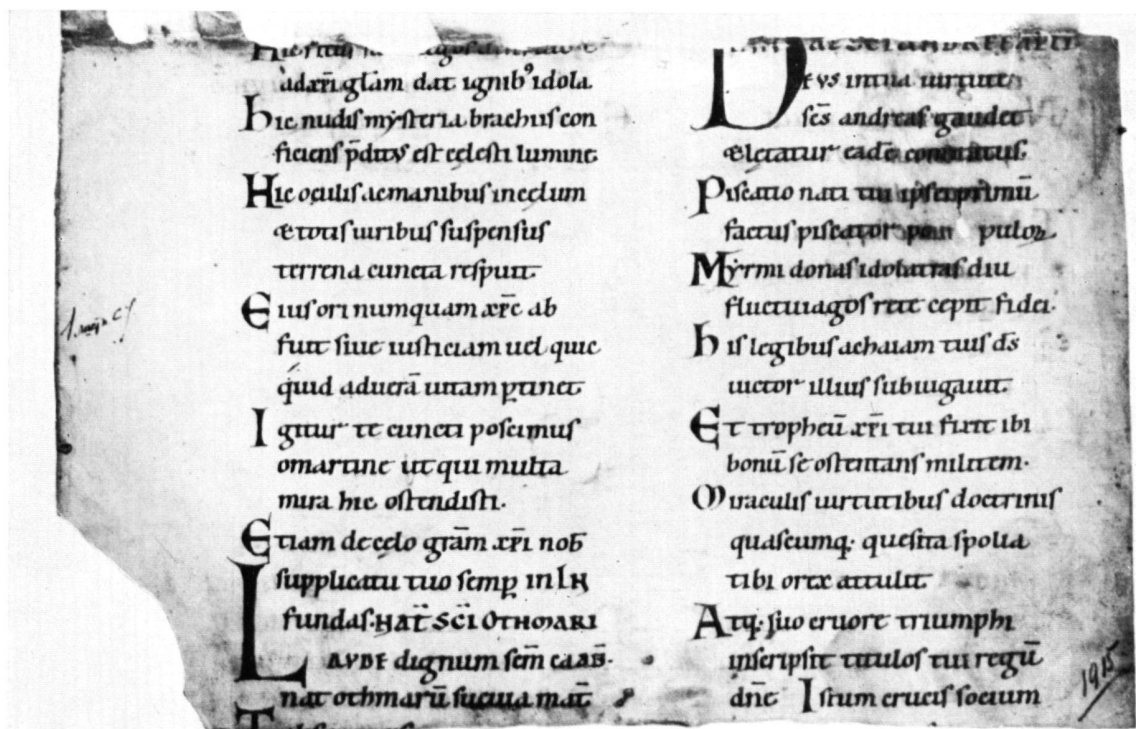 ad xp̄i gl̄am dat ignib⁹ idola
Hic nudis mẏsteria brachiis con
ficiens p̄ditus est cęlesti lumine
Hic oculis ac manibus in cęlum
& totis uiribus suspensus
terrena cuncta respuit
Eius ori numquam xp̄c ab
fuit siue iusticiam uel quic
quid ad uerā uitam ꝑtinet
Igitur te cuncti poscimus
o martine ut qui multa
mira hic ostendisti.
Etiam de cęlo gr̄am xp̄i nob̄
supplicatu tuo semꝑ in
fundas. NAT̄ SC̄I OTHMARI
LAVDE dignum
nat othmarū sueuia mat̄
NAT SC̄I ANDREE
Deus in tua uirtute
sc̄s andreas gaudet
& lętatur eadē comitatus.
Piscatio nati tui primū
factus piscator populoꝝ
Mẏrmidonas idolatras diu
fluctuiagos rete cepit fidei.
His legibus achaiam tuis d̄s
uictor illius subiugauit.
Et tropheū xp̄i tui fixit ibi
bonū se ostentans militem.
Miraculis uirtutibus doctrinis
quascumq; quesita spolia
tibi orex attulit
Atq; suo cruore triumphi
inscripsit titulos tui regū
dn̄e Istum crucis socium
1915